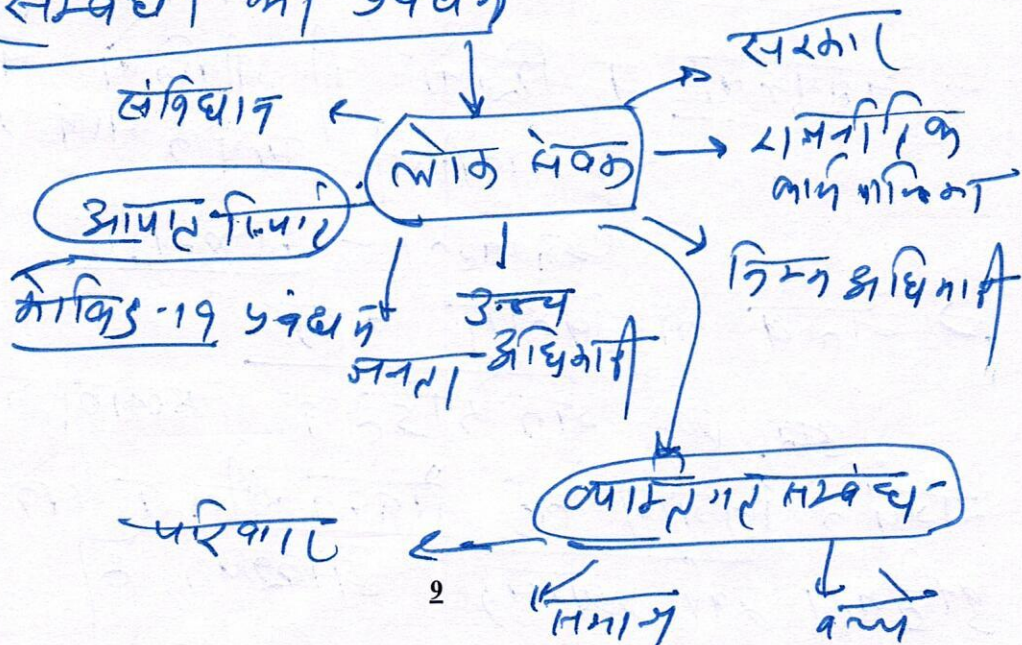 सम्बंधों का प्रबंधन
सरकार
संविधान
लोक सेवक
राजनीतिक
कार्यपालिका
आपात स्थिति
कोविड-19 प्रबंधन
जनता
उच्च
अधिकारी
निम्न अधिकारी
व्यक्तिगत सम्बंध
परिवार
समाज
बच्चे
9